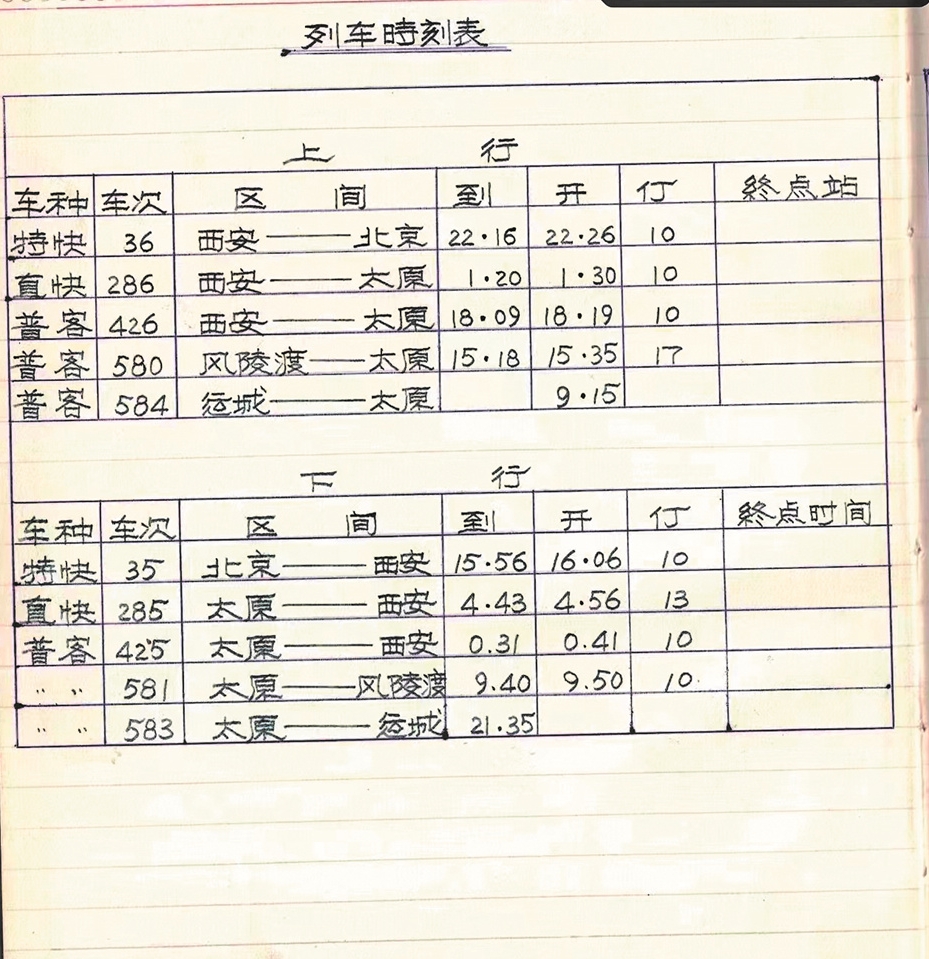 列车時刻表
上 行
车种 车次 区 间 到 开 仃 終点站
特快 36 西安——北京 22·16 22·26 10
直快 286 西安——太原 1·20 1·30 10
普客 426 西安——太原 18·09 18·19 10
普客 580 风陵渡——太原 15·18 15·35 17
普客 584 运城——太原 9·15
下 行
车种 车次 区 间 到 开 仃 終点时间
特快 35 北京——西安 15·56 16·06 10
直快 285 太原——西安 4·43 4·56 13
普客 425 太原——西安 0.31 0.41 10
〃 〃 581 太原——风陵渡 9.40 9.50 10
〃 〃 583 太原——运城 21·35